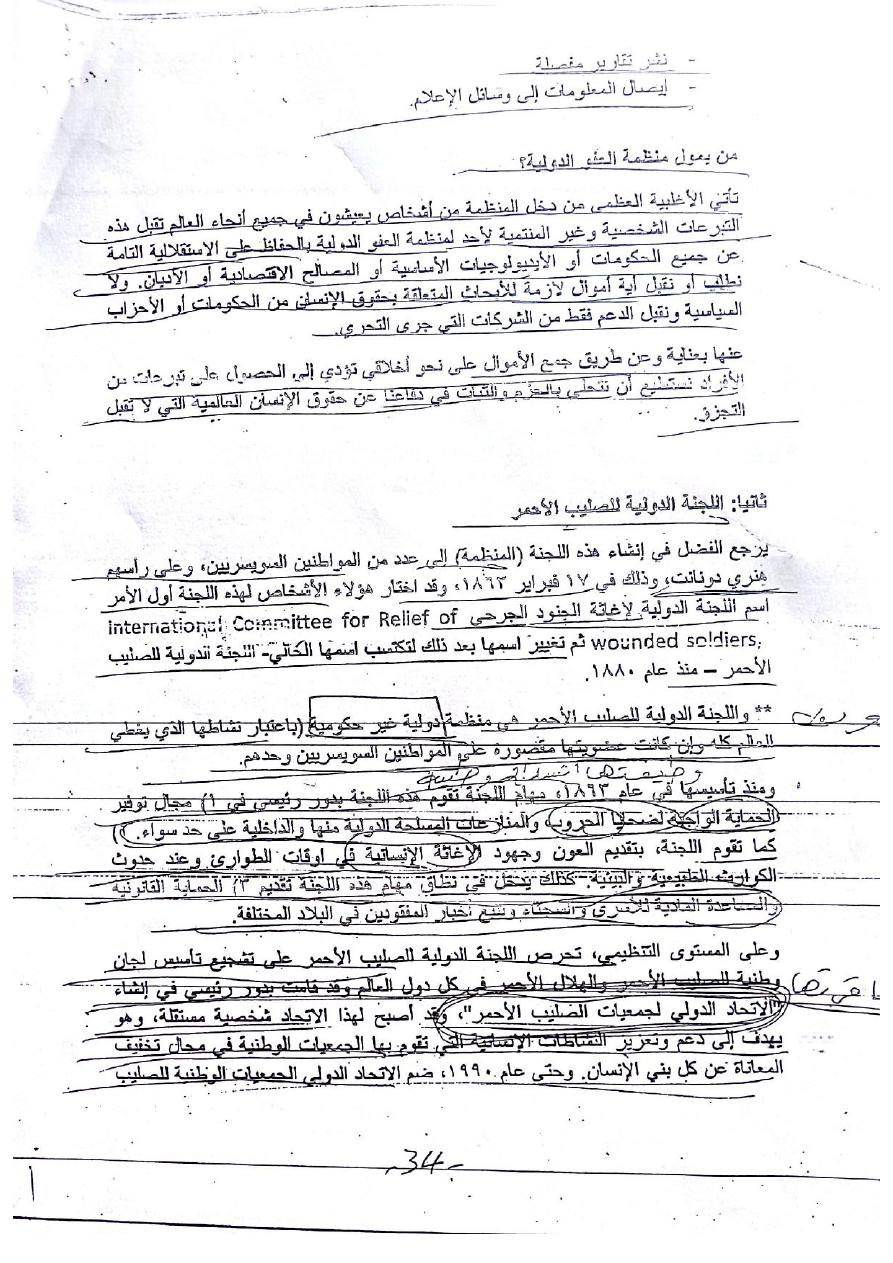 - نشر تقارير مفصلة
- إيصال المعلومات إلى وسائل الإعلام.
من يمول منظمة العفو الدولية؟
تأتي الأغلبية العظمى من دخل المنظمة من أشخاص يعيشون في جميع أنحاء العالم تقبل هذه
التبرعات الشخصية وغير المنتمية لأحد لمنظمة العفو الدولية بالحفاظ على الاستقلالية التامة
عن جميع الحكومات أو الأيديولوجيات الأساسية أو المصالح الاقتصادية أو الأديان. ولا
نطلب أو نقبل أية أموال لازمة للأبحاث المتعلقة بحقوق الإنسان من الحكومات أو الأحزاب
السياسية ونقبل الدعم فقط من الشركات التي جرى التحري.
عنها بعناية وعن طريق جمع الأموال على نحو أخلاقي تؤدي إلى الحصول على تبرعات من
الأفراد نستطيع أن نتحلى بالحزم والثبات في دفاعنا عن حقوق الإنسان العالمية التي لا تقبل
التجزؤ.
ثانيا: اللجنة الدولية للصليب الأحمر
يرجع الفضل في إنشاء هذه اللجنة (المنظمة) إلى عدد من المواطنين السويسريين، وعلى رأسهم
هنري دونانت، وذلك في ١٧ فبراير ١٨٦٣، وقد اختار هؤلاء الأشخاص لهذه اللجنة أول الأمر
اسم اللجنة الدولية لإغاثة الجنود الجرحى international Committee for Relief of
wounded soldiers, ثم تغيير اسمها بعد ذلك لتكتسب اسمها الحالي- اللجنة الدولية للصليب
الأحمر – منذ عام ١٨٨٠.
** واللجنة الدولية للصليب الأحمر هي منظمة دولية غير حكومية (باعتبار نشاطها الذي يغطي
العالم كله وإن كانت عضويتها مقصورة على المواطنين السويسريين وحدهم.
ومنذ تأسيسها في عام ١٨٦٣، مهام اللجنة تقوم هذه اللجنة بدور رئيسي في ١) مجال توفير
الحماية الواجبة لضحايا الحروب والمنازعات المسلحة الدولية منها والداخلية على حد سواء. ٢)
كما تقوم اللجنة، بتقديم العون وجهود الإغاثة الإنسانية في اوقات الطوارئ وعند حدوث
الكوارث الطبيعية والبيئية. كذلك يدخل في نطاق مهام هذه اللجنة تقديم ٣) الحماية القانونية
والمساعدة المادية للأسرى والسجناء وتتبع أخبار المفقودين في البلاد المختلفة.
وعلى المستوى التنظيمي، تحرص اللجنة الدولية للصليب الأحمر على تشجيع تأسيس لجان
وطنية للصليب الأحمر والهلال الأحمر في كل دول العالم وقد قامت بدور رئيسي في إنشاء
"الاتحاد الدولي لجمعيات الصليب الأحمر"، وقد أصبح لهذا الاتحاد شخصية مستقلة، وهو
يهدف إلى دعم وتعزيز النشاطات الإنسانية التي تقوم بها الجمعيات الوطنية في مجال تخفيف
المعاناة عن كل بني الإنسان. وحتى عام ١٩٩٠، ضم الاتحاد الدولي الجمعيات الوطنية للصليب
-34-